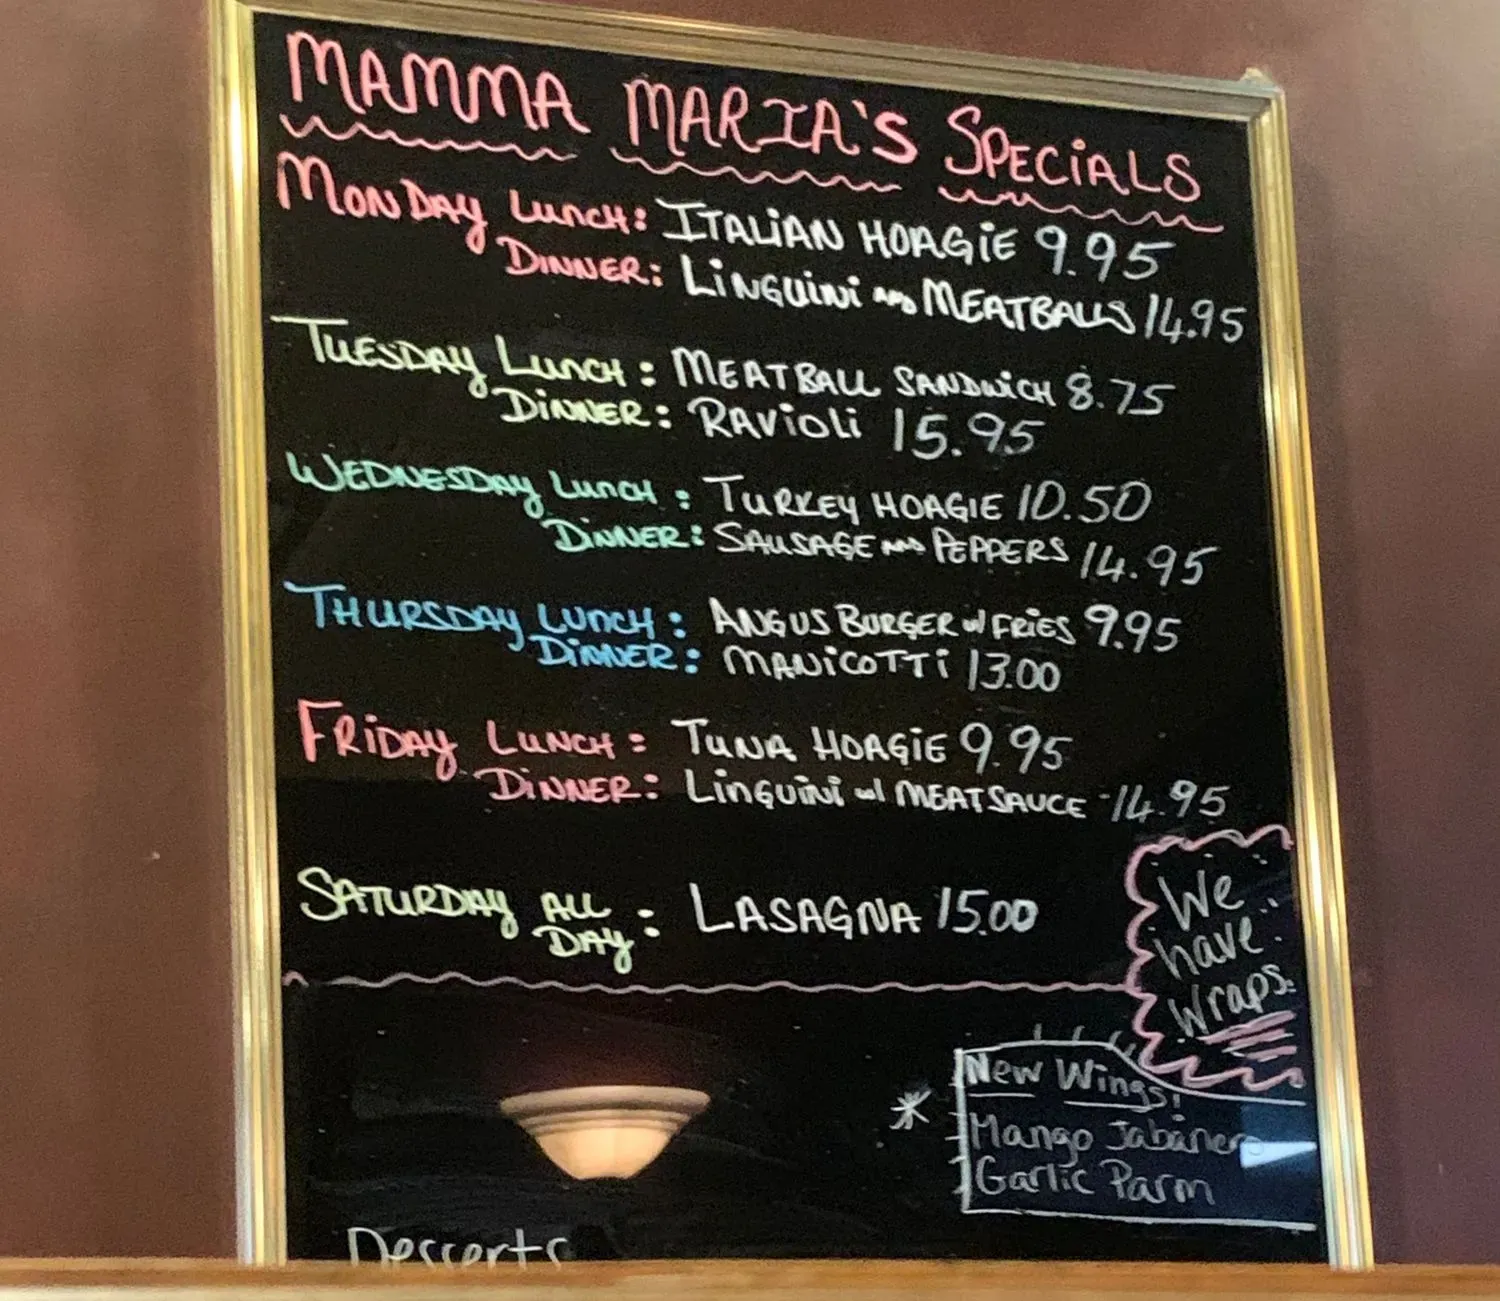 MAMMA MARIA'S SPECIALS
MONDAY LUNCH: ITALIAN HOAGIE 9.95
DINNER: LINGUINI AND MEATBALLS 14.95
TUESDAY LUNCH: MEATBALL SANDWICH 8.75
DINNER: RAVIOLI 15.95
WEDNESDAY LUNCH: TURKEY HOAGIE 10.50
DINNER: SAUSAGE AND PEPPERS 14.95
THURSDAY LUNCH: ANGUS BURGER w/ FRIES 9.95
DINNER: MANICOTTI 13.00
FRIDAY LUNCH: TUNA HOAGIE 9.95
DINNER: LINGUINI w/ MEAT SAUCE 14.95
SATURDAY ALL DAY: LASAGNA 15.00
We
have
Wraps
New Wings!
* Mango Jabanero
Garlic Parm
Desserts